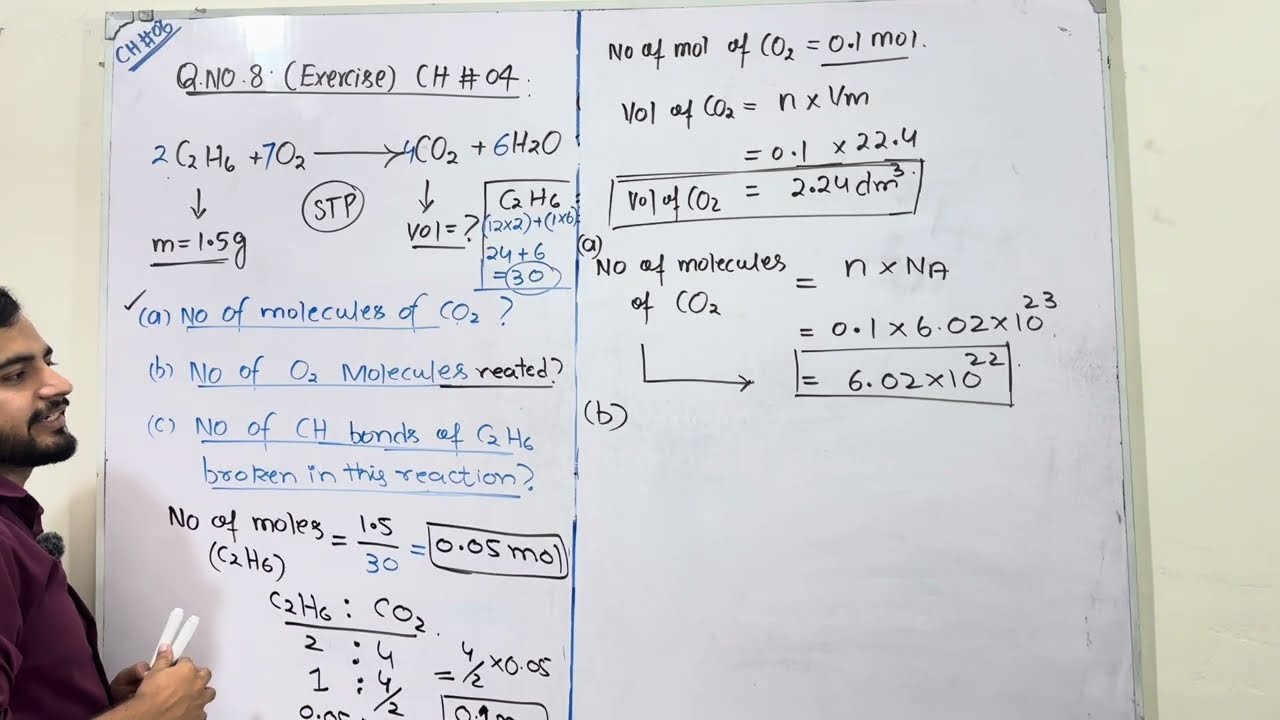 CH#06
Q.NO.8. (Exercise) CH # 04.
2C₂H₆ + 7O₂ ⟶ 4CO₂ + 6H₂O
↓ STP ↓
m = 1.5g
vol = ?
C₂H₆
(12×2)+(1×6)
24+6
=30
✓(a) No of molecules of CO₂ ?
(b) No of O₂ Molecules reated?
(c) No of CH bonds of C₂H₆
broken in this reaction?
No of moles = 1.5/30 = 0.05 mol
(C₂H₆)
C₂H₆ : CO₂
2 : 4
1 : 4/2 = 4/2 × 0.05
0.05
No of mol of CO₂ = 0.1 mol.
Vol of CO₂ = n × Vm
= 0.1 × 22.4
Vol of CO₂ = 2.24 dm³.
(a)
No of molecules = n × NA
of CO₂
= 0.1 × 6.02 × 10²³
= 6.02 × 10²²
(b)